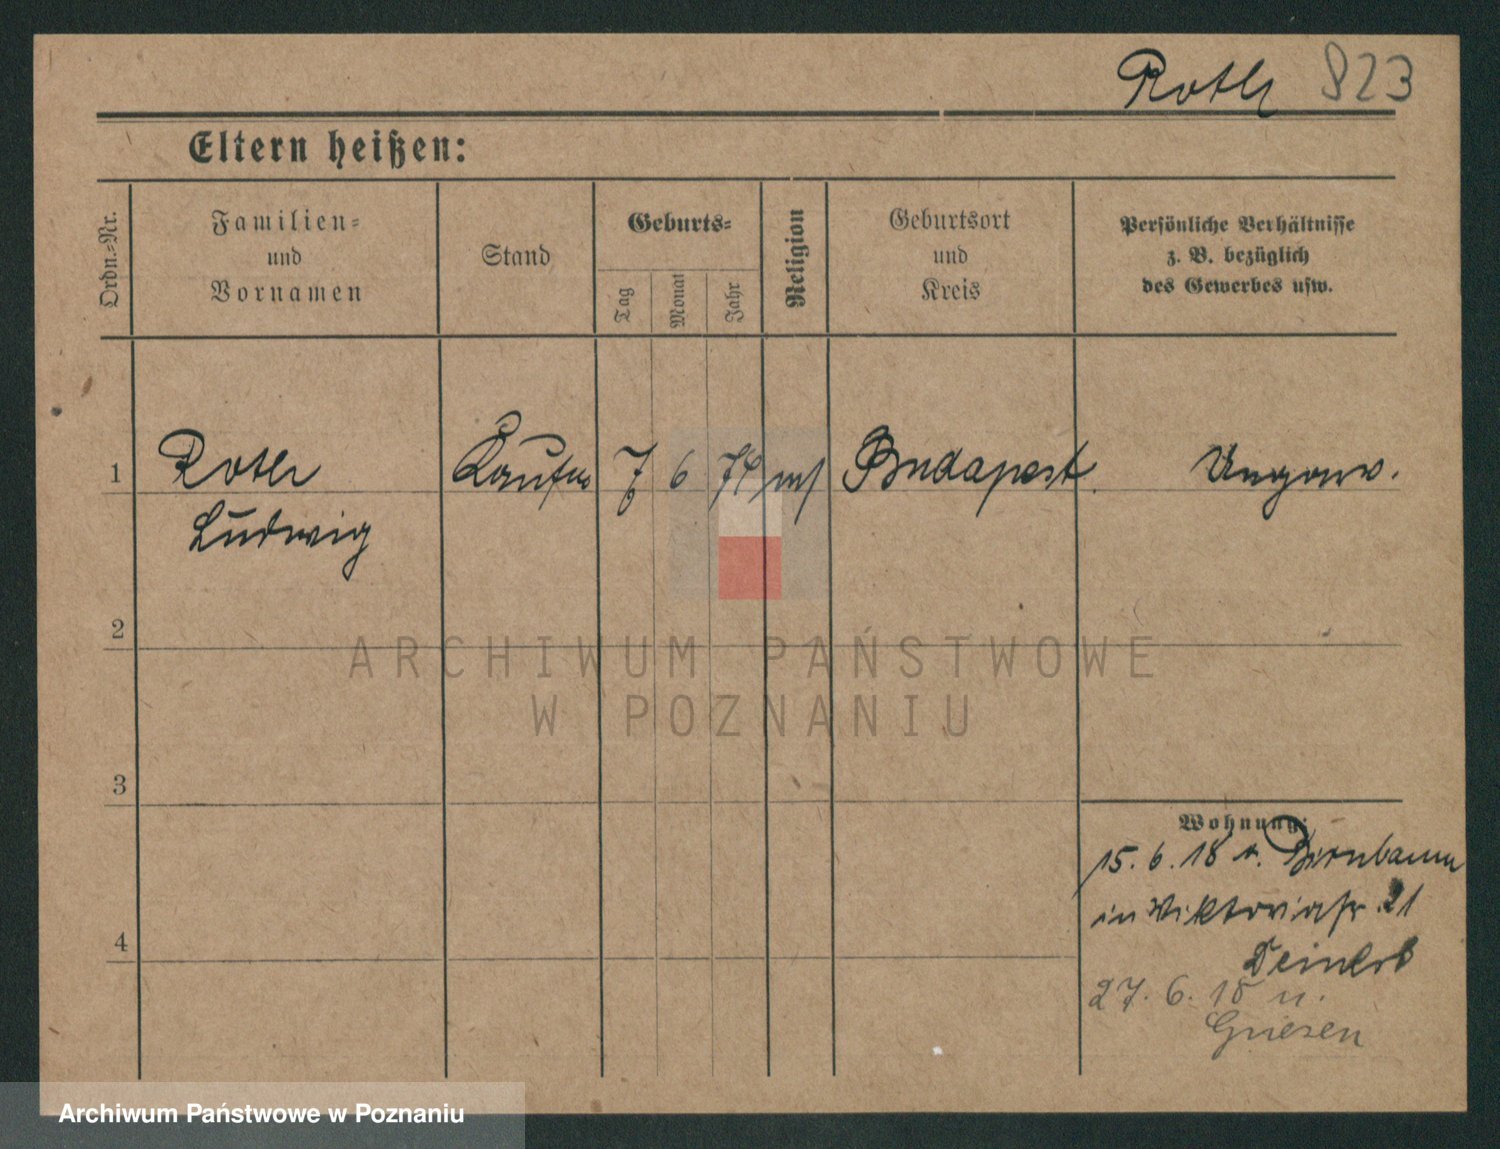 Roth 823
Eltern heißen:
Ordn.-Nr.
Familien-
und
Vornamen
Stand
Geburts-
Tag
Monat
Jahr
Religion
Geburtsort
und
Kreis
Persönliche Verhältnisse
z. B. bezüglich
des Gewerbes usw.
1 Roth Kaufm 7 6 74 Budapest Ungarn.
Ludwig
2
3
4
Wohnung:
15.6.18 v. Birnbaum
in Viktoriastr. 21
27.6.18 n.
Gnesen
ARCHIWUM PAŃSTWOWE
W POZNANIU
Archiwum Państwowe w Poznaniu